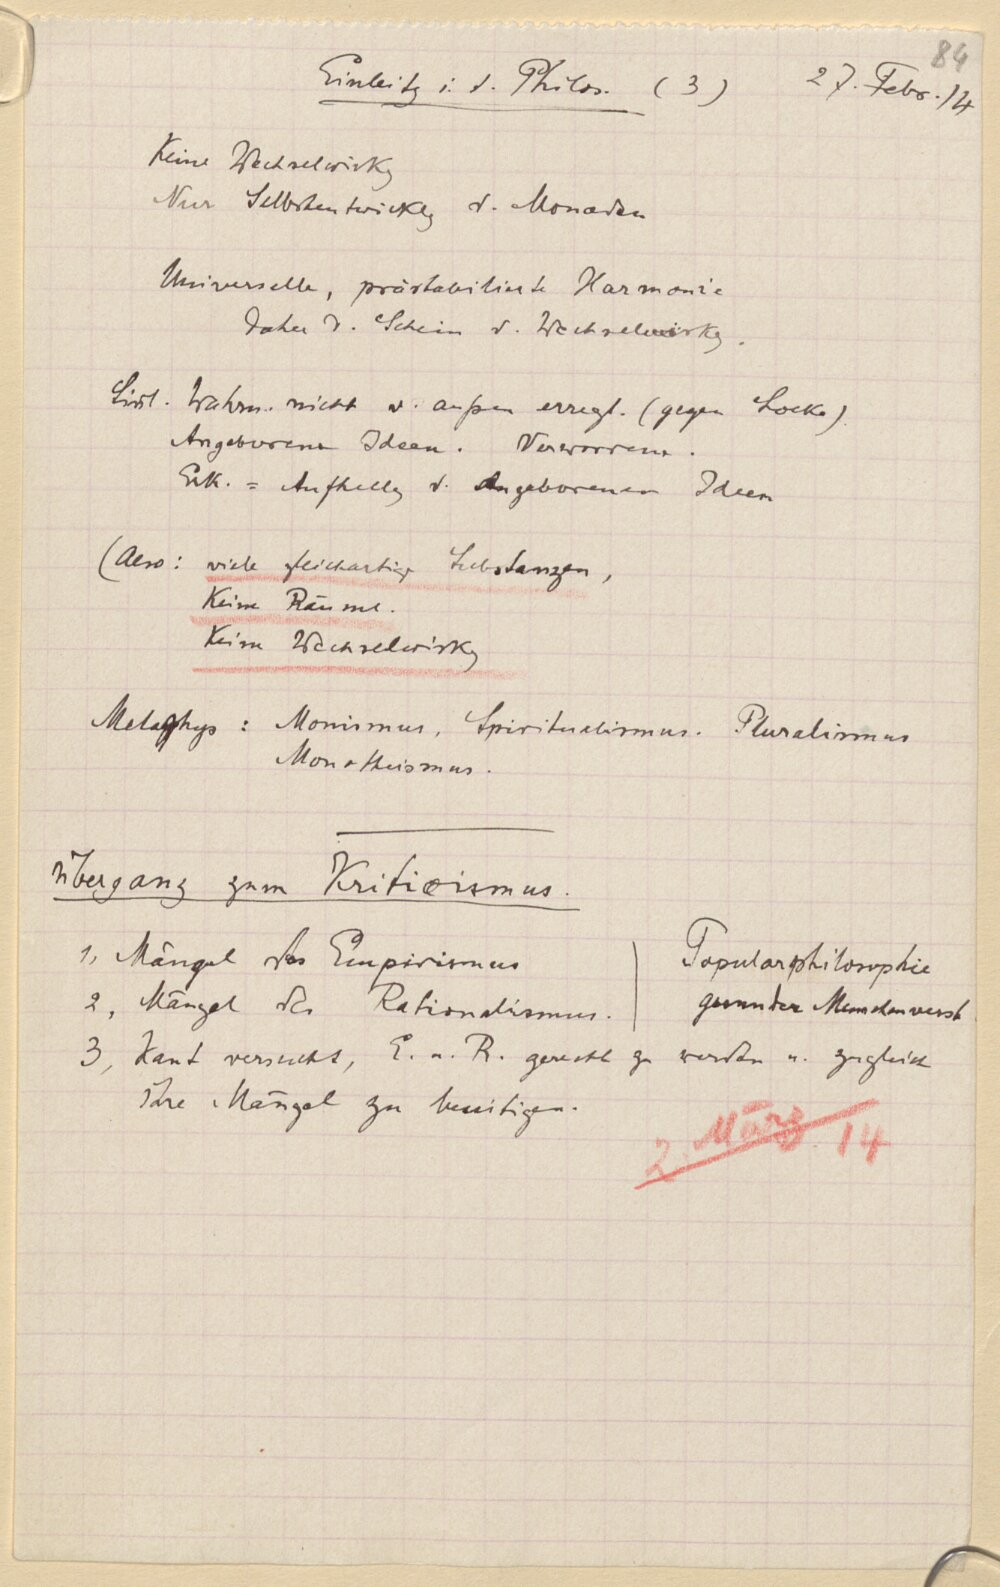 84
Einleitg i. d. Philos. (3) 27. Febr. 14
Keine Wechselwirkg
Nur Selbstentwicklg d. Monaden
Universelle, prästabilierte Harmonie
Daher d. Schein d. Wechselwirkg.
Sinnl. Wahrn. nicht v. außen erregt. (gegen Locke).
Angeborene Ideen. Verworrene.
Erk. = Aufhellg d. Angeborenen Ideen
(Also: viele gleichartige Substanzen,
Keine Räume.
Keine Wechselwirkg
Metaphys: Monismus, Spiritualismus. Pluralismus
Monotheismus.
Übergang zum Kriticismus.
1, Mängel des Empirismus
2, Mängel des Rationalismus.
Popularphilosophie
gesunder Menschenverst.
3, Kant versucht, E. u. R. gerecht zu werden u. zugleich
ihre Mängel zu beseitigen.
2. März 14